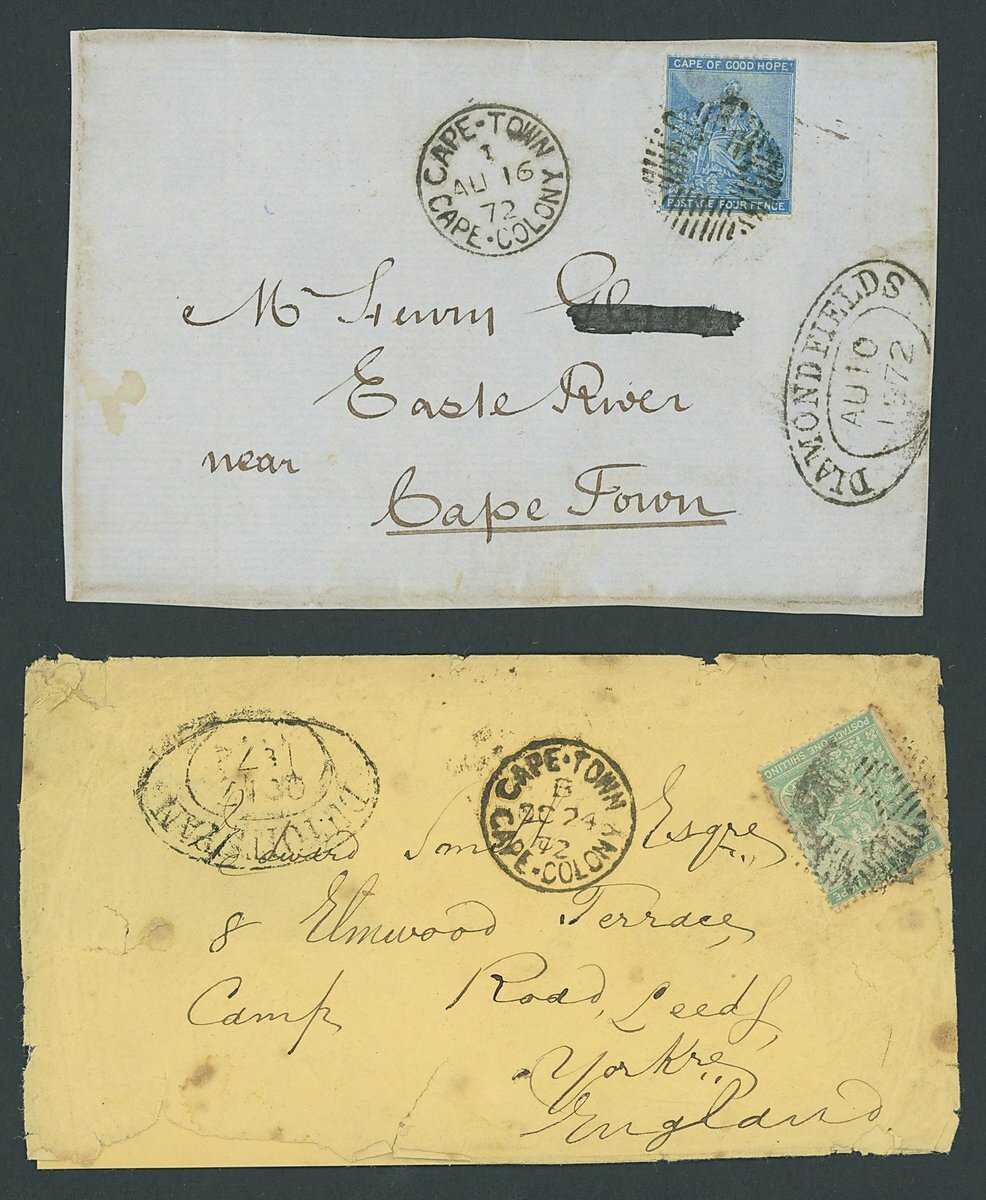 CAPE OF GOOD HOPE
POSTAGE FOUR PENCE
CAPE·TOWN
1
AU 16
72
CAPE·COLONY
DIAMONDFIELDS
AU 10
1872
Mr Henry
Easte River
near
Cape Town
POSTAGE ONE SHILLING
CAPE·TOWN
B
24
72
CAPE·COLONY
DUTOITSPAN
Edward Esqre
8 Elmwood Terrace,
Camp Road, Leeds,
Yorkre
England